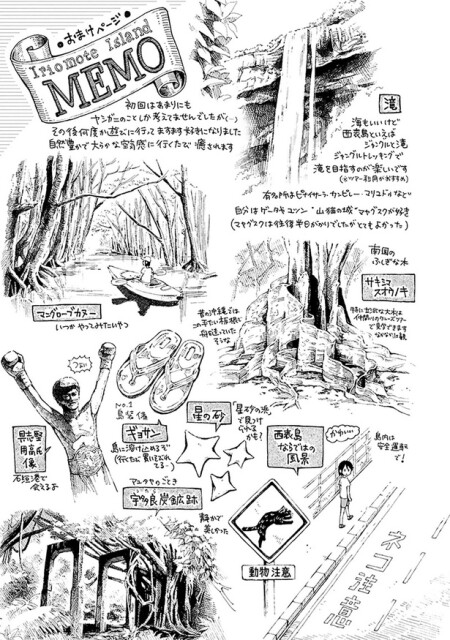 おまけページ
Iriomote Island
MEMO
初回はあまりにも
ヤンガーのことしか考えてませんでしたが(…)
その後何度か遊びに行ってますます好きになりました
自然豊かで大らかな空気感に行くたび癒されます
滝
海もいいけど
西表島といえば
ジャングルと滝
ジャングルトレッキングで
滝を目指すのが楽しいです
(※ツアー利用がおすすめ)
有名所はピナイサーラ・カンビレー・マリユドゥなど
自分はゲータ
ユツン
"山猫の城"マヤグスクが好き
(マヤグスクは往復半日がかりでしたがとてもよかった)
マングローブカヌー
いつかやってみたいやつ
南国の
ふしぎな木
サキシマ
スオウノキ
特に
大木は
仲間川クルーズツアー
で見学できます
昔の沖縄では
この平たい板根で
舟を造っていた
そうな
No.1
島草履
ギョサン
島に溶け込めるぞ
(行くたび買いそびれ
てる…)
具志堅
用高氏
像
石垣港で
会えるよ
星の砂
「星砂の浜」
で見つけ
られる
かも?
西表島
ならではの
風景
かわいい
島内は
安全運転
で!
アニタヤのごとき
宇多良炭鉱跡
静かで
美しかった
動物注意
ネコ注意